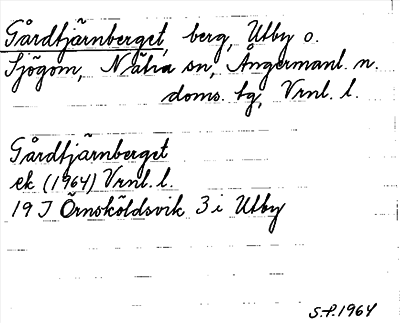 Gårdtjärnberget, berg, Utby o.
Sjögom, Nätra sn, Ångermanl. n.
doms. tg, Vrnl. l.
Gårdtjärnberget
ek (1964) Vrnl. l.
19 J Örnsköldsvik 3 i Utby
S.P. 1964